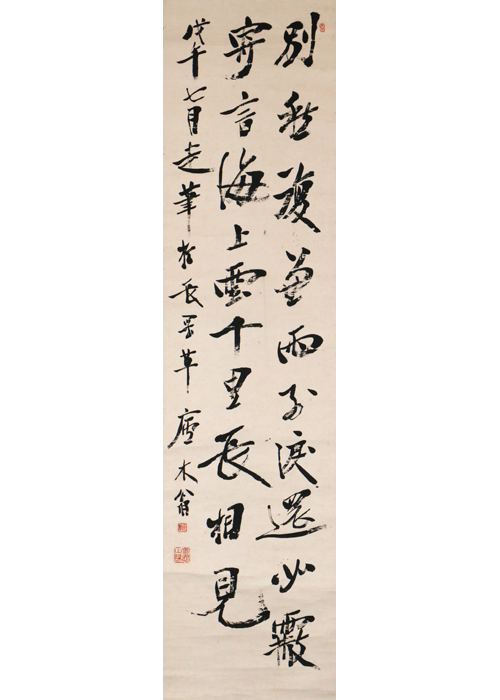 別愁復兼雨別淚還如霰
寄言海上雲千里長相見
戊午七月走筆於長草廬木翁